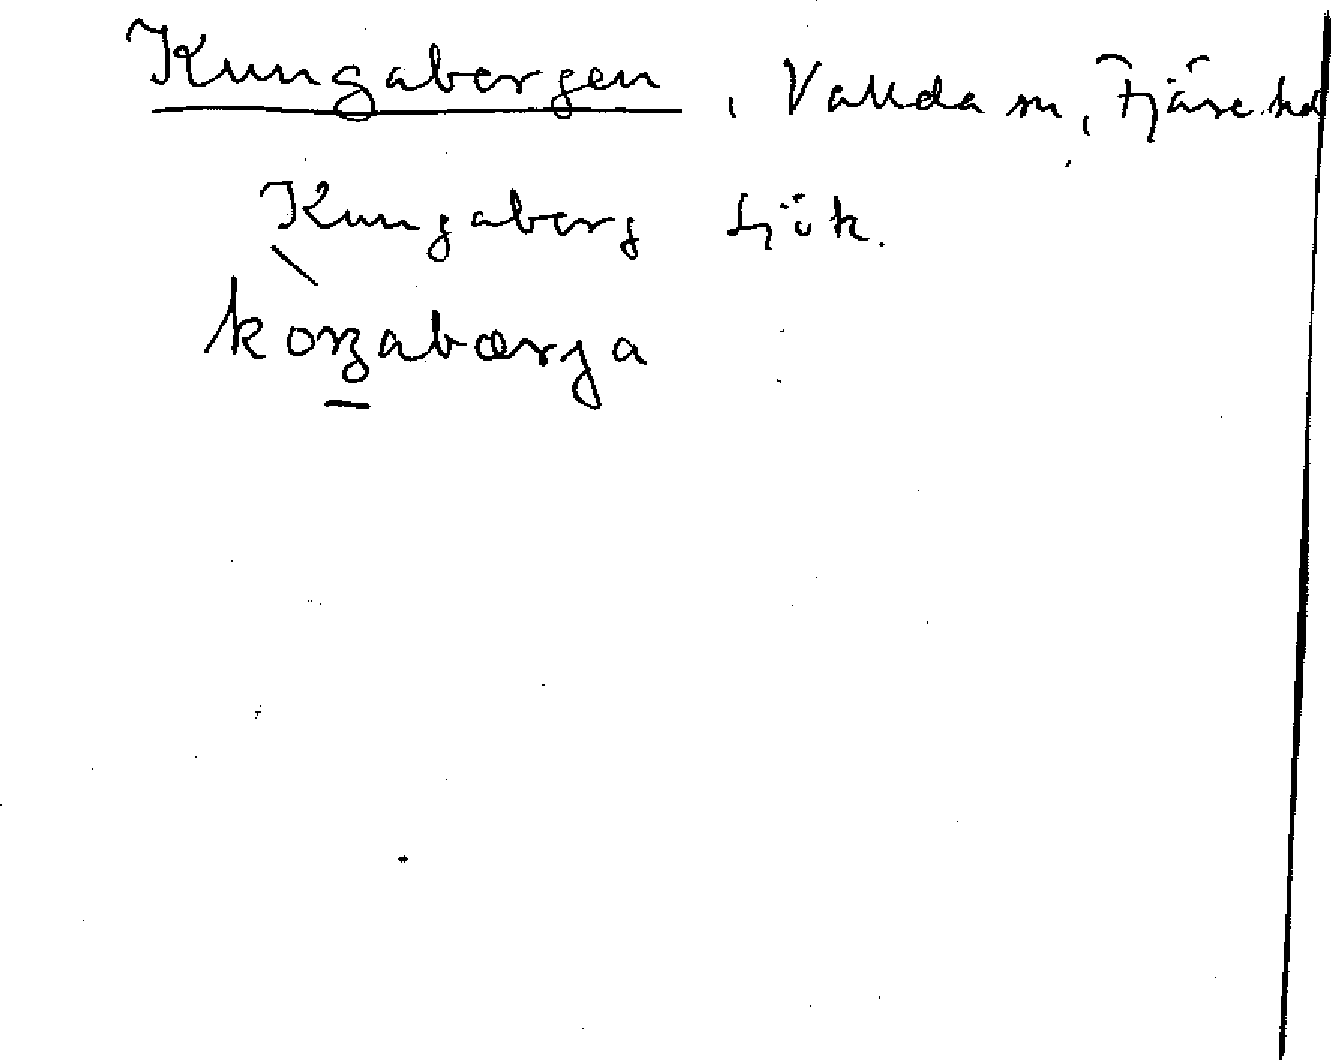 Kungabergen, Vallda sn, Fjäre hd
Kungaberg sjök.
koŋabærga